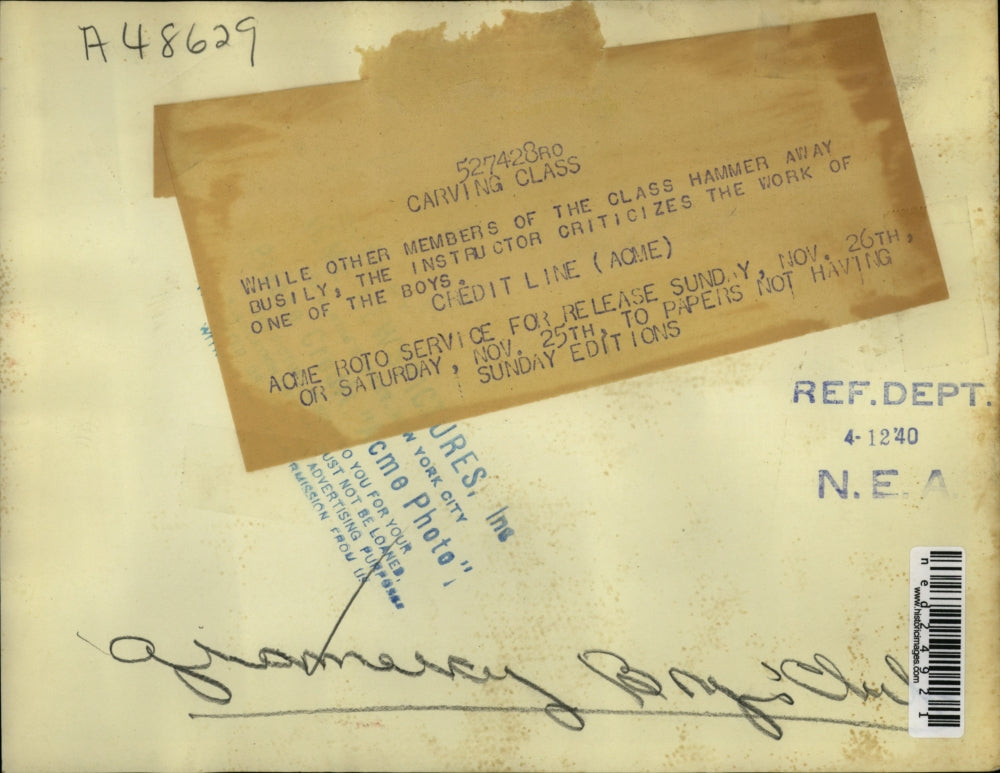 A48629
527428RO
CARVING CLASS
WHILE OTHER MEMBERS OF THE CLASS HAMMER AWAY
BUSILY, THE INSTRUCTOR CRITICIZES THE WORK OF
ONE OF THE BOYS.
CREDIT LINE (ACME)
ACME ROTO SERVICE FOR RELEASE SUND.Y, NOV. 26TH,
OR SATURDAY, NOV. 25TH, TO PAPERS NOT HAVING
SUNDAY EDITIONS
URES, Inc
YORK CITY
cme Photo"
O YOU FOR YOUR
UST NOT BE LOANED,
ADVERTISING PURPOSES
RMISSION FROM US
REF. DEPT.
4-12'40
N. E. A
Gramercy Boys Club
ned24921
www.historicimages.com